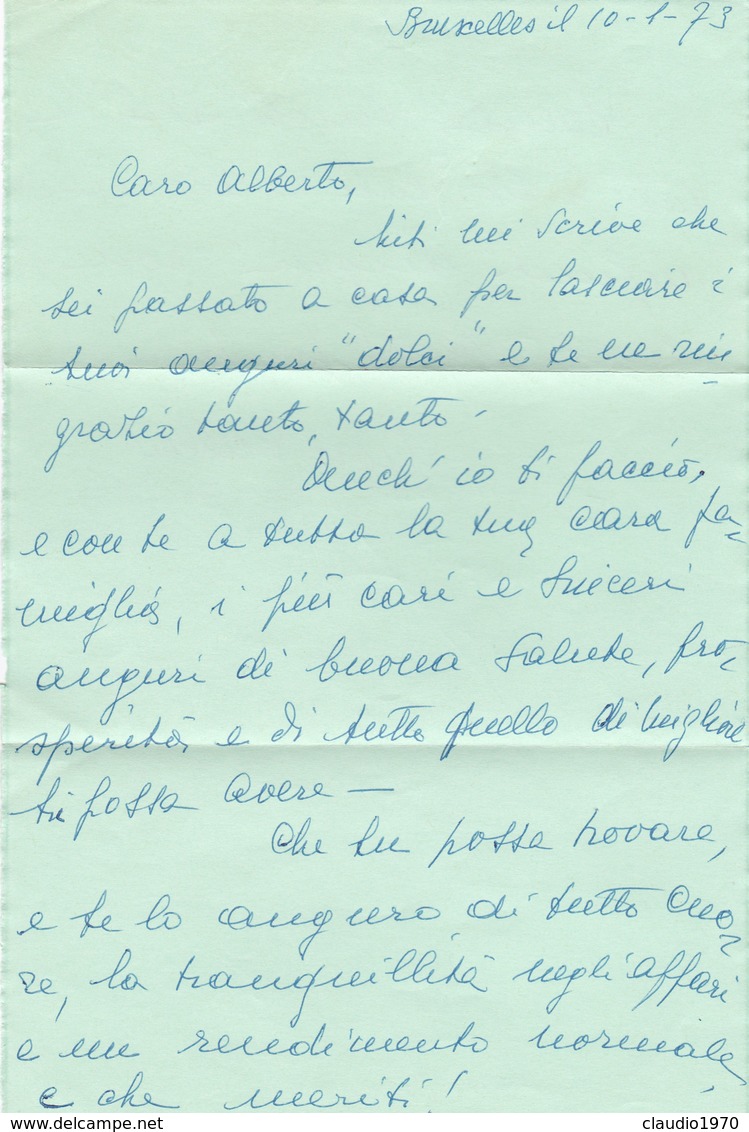 Bruxelles il 10-1-73
Caro Alberto,
mi scrive che
sei passato a casa per lasciare i
tuoi auguri "dolci" e te ne rin
grazio tanto, tanto -
Anch'io ti faccio,
e con te a tutta la tua cara fa-
miglia, i più cari e sinceri
auguri di buona salute, pro-
sperità e di tutto quello di migliore
tu possa avere —
Che tu possa trovare,
e te lo auguro di tutto cuo-
re, la tranquillità negli affari
e un rendimento normale,
e che meriti!
claudio1970